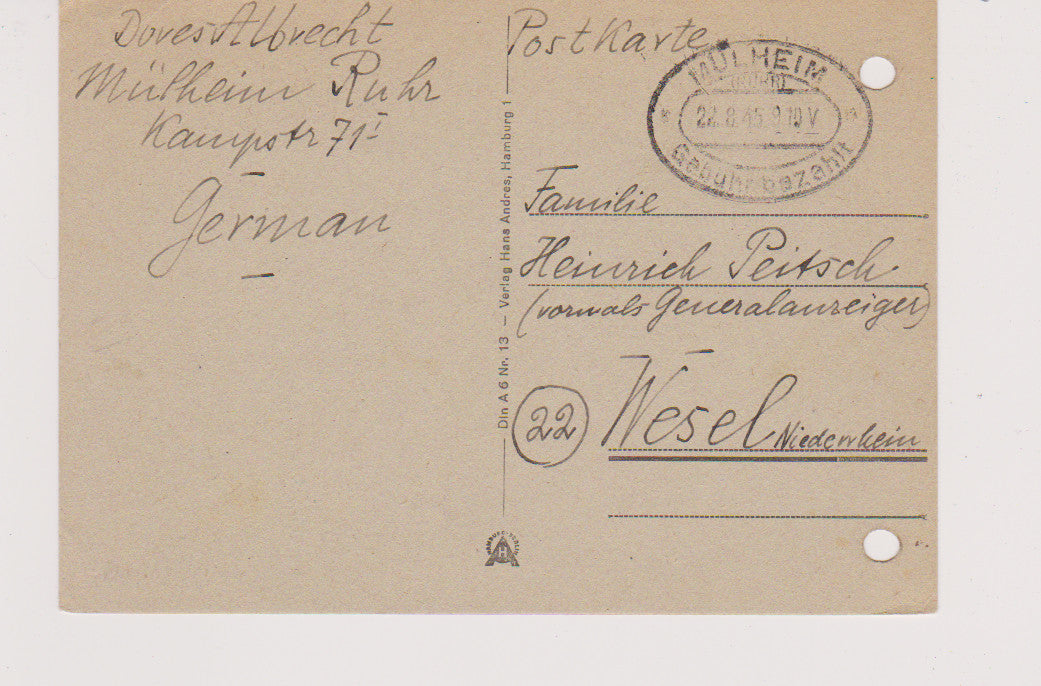 Dores Albrecht
Mülheim Ruhr
Kampstr 71 I
German
Din A 6 Nr. 13 — Verlag Hans Andres, Hamburg 1
HAMBURG-BERLIN
AH
PostKarte
MÜLHEIM
(RUHR)
22.8.45.9-10 V
Gebühr bezahlt
Familie
Heinrich Peitsch
(vormals Generalanzeiger)
22
Wesel Niederrhein